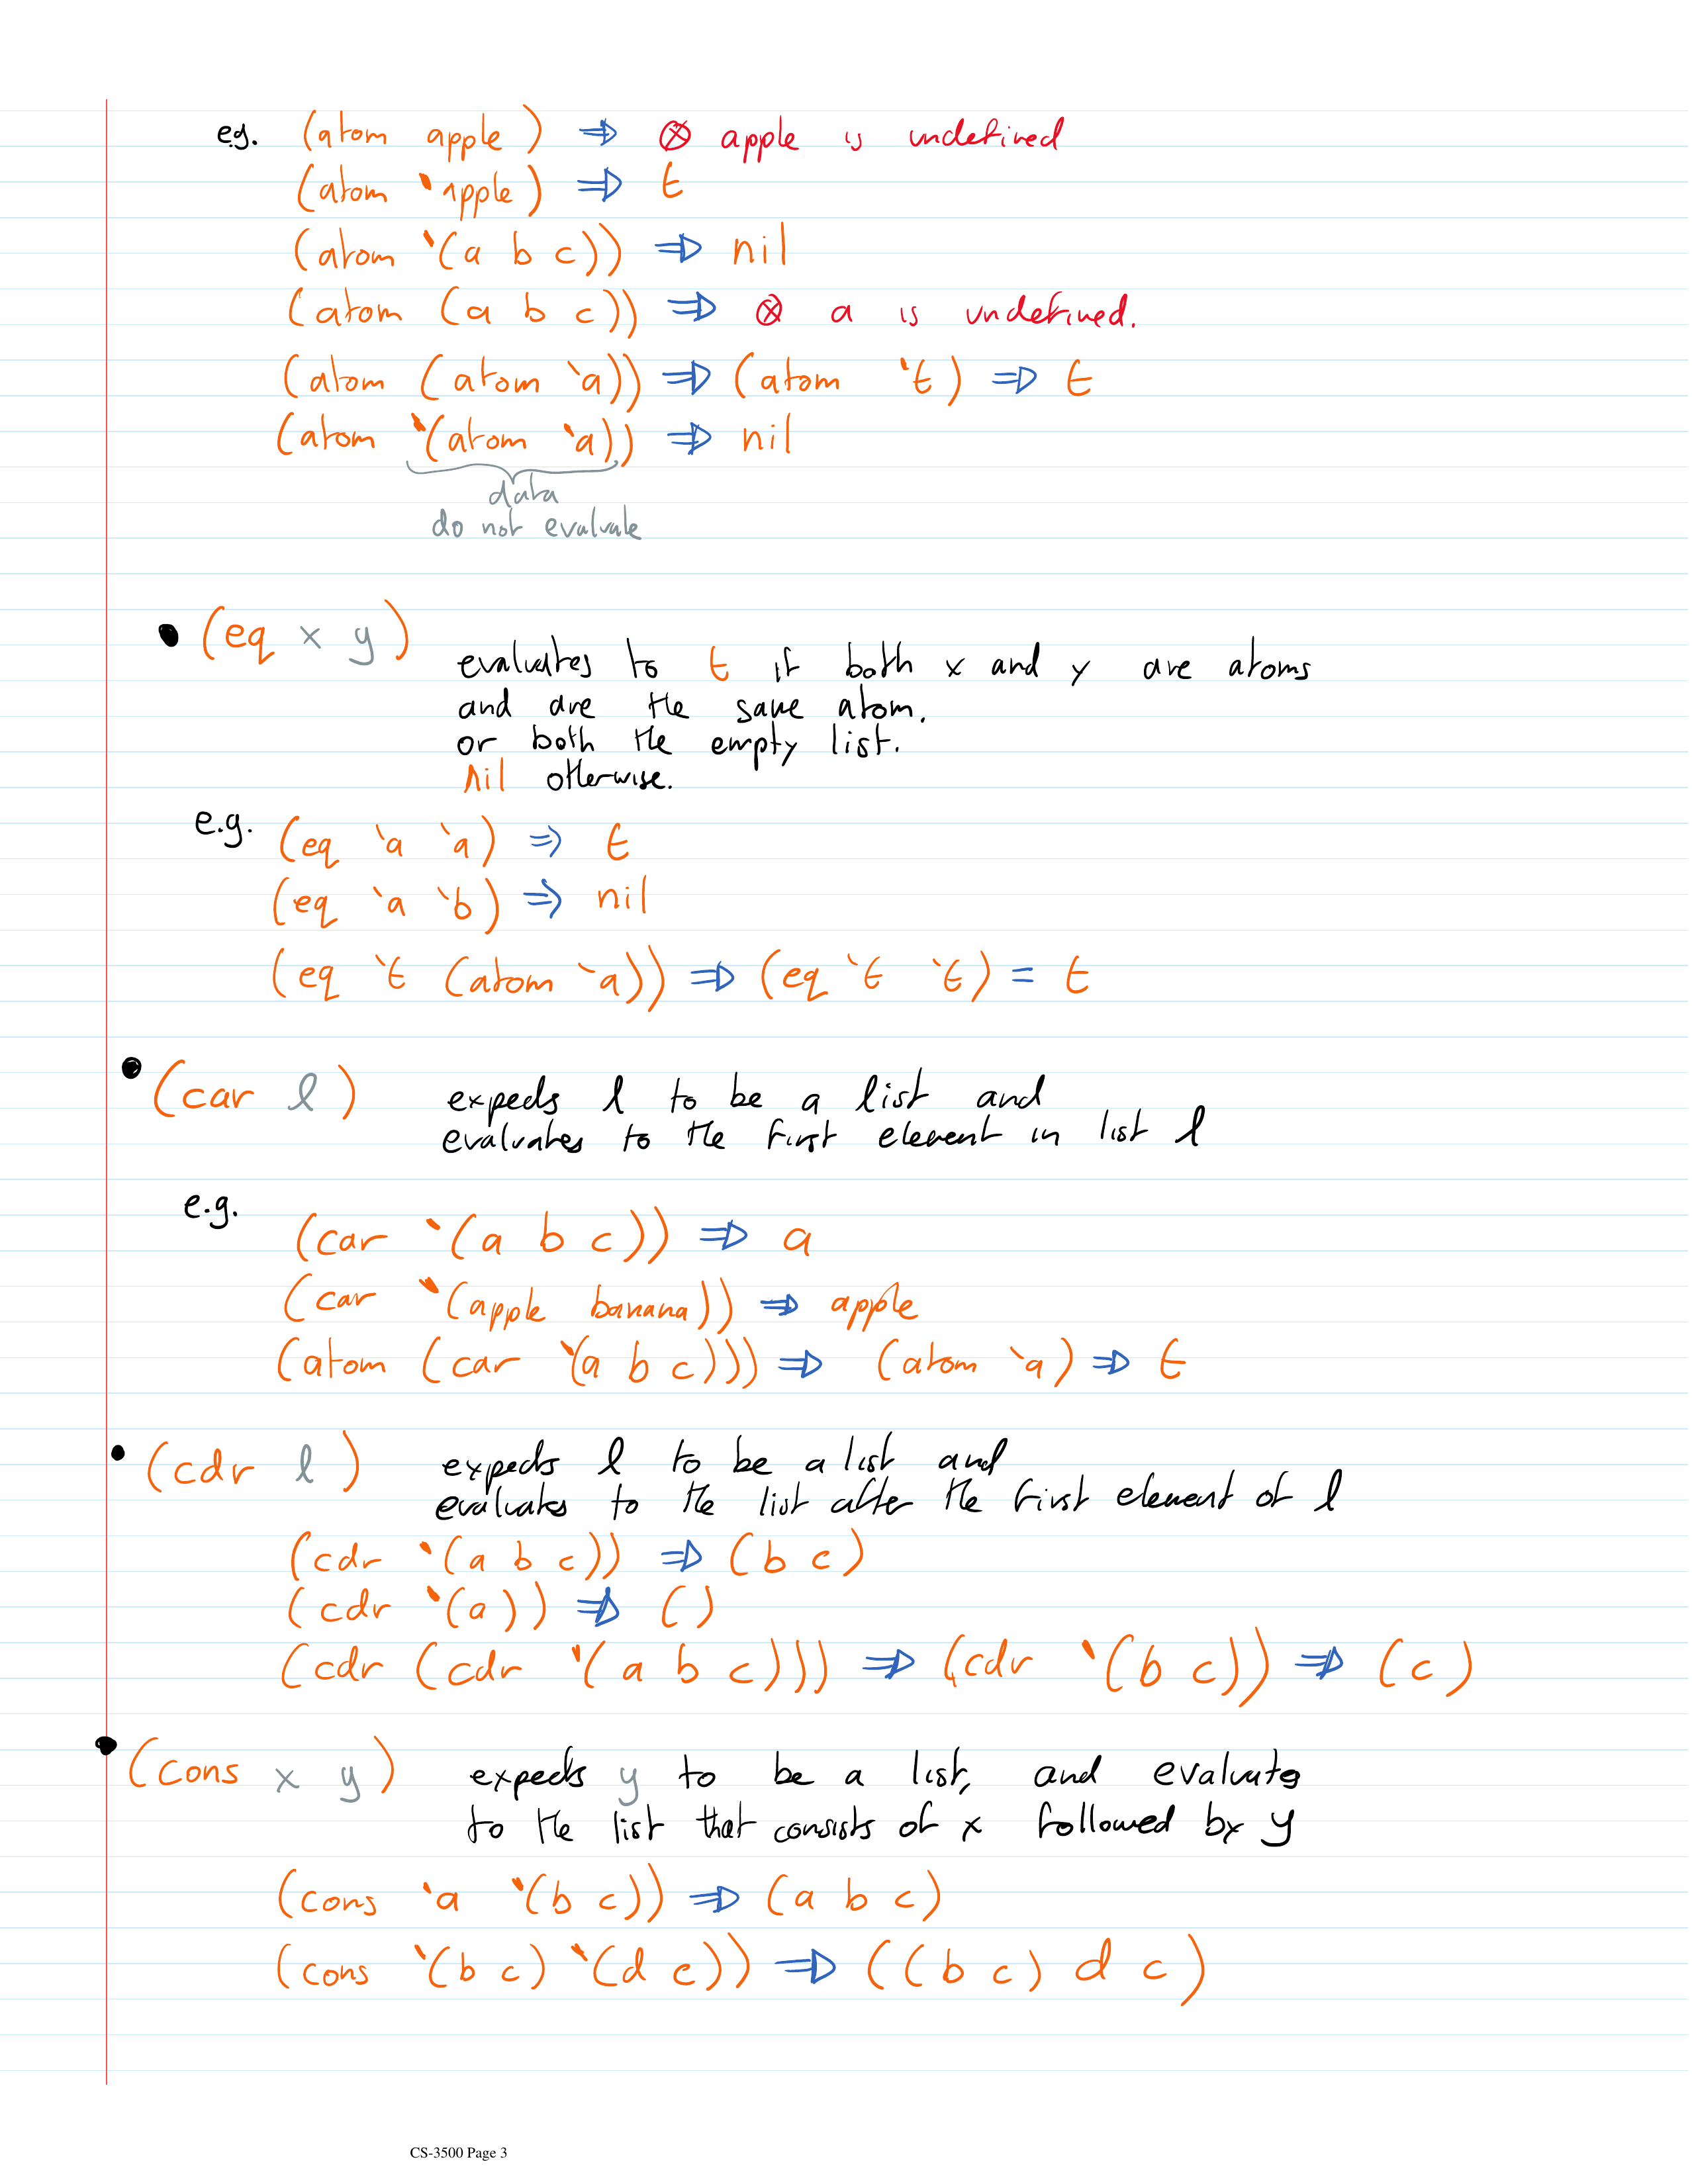 eg. (atom apple) ⇒ ⊗ apple is undefined
(atom `apple) ⇒ t
(atom `(a b c)) ⇒ nil
(atom (a b c)) ⇒ ⊗ a is undefined.
(atom (atom `a)) ⇒ (atom `t) ⇒ t
(atom `(atom `a)) ⇒ nil
data
do not evaluate
• (eq x y)
evaluates to t if both x and y are atoms
and are the same atom.
or both the empty list.
nil otherwise.
e.g. (eq `a `a) ⇒ t
(eq `a `b) ⇒ nil
(eq `t (atom `a)) ⇒ (eq `t `t) = t
• (car l) expects l to be a list and
evaluates to the first element in list l
e.g.
(car `(a b c)) ⇒ a
(car `(apple banana)) ⇒ apple
(atom (car `(a b c))) ⇒ (atom `a) ⇒ t
• (cdr l) expects l to be a list and
evaluates to the list after the first element of l
(cdr `(a b c)) ⇒ (b c)
(cdr `(a)) ⇒ ()
(cdr (cdr `(a b c))) ⇒ (cdr `(b c)) ⇒ (c)
• (cons x y) expects y to be a list, and evaluates
to the list that consists of x followed by y
(cons `a `(b c)) ⇒ (a b c)
(cons `(b c) `(d e)) ⇒ ((b c) d c)
CS-3500 Page 3